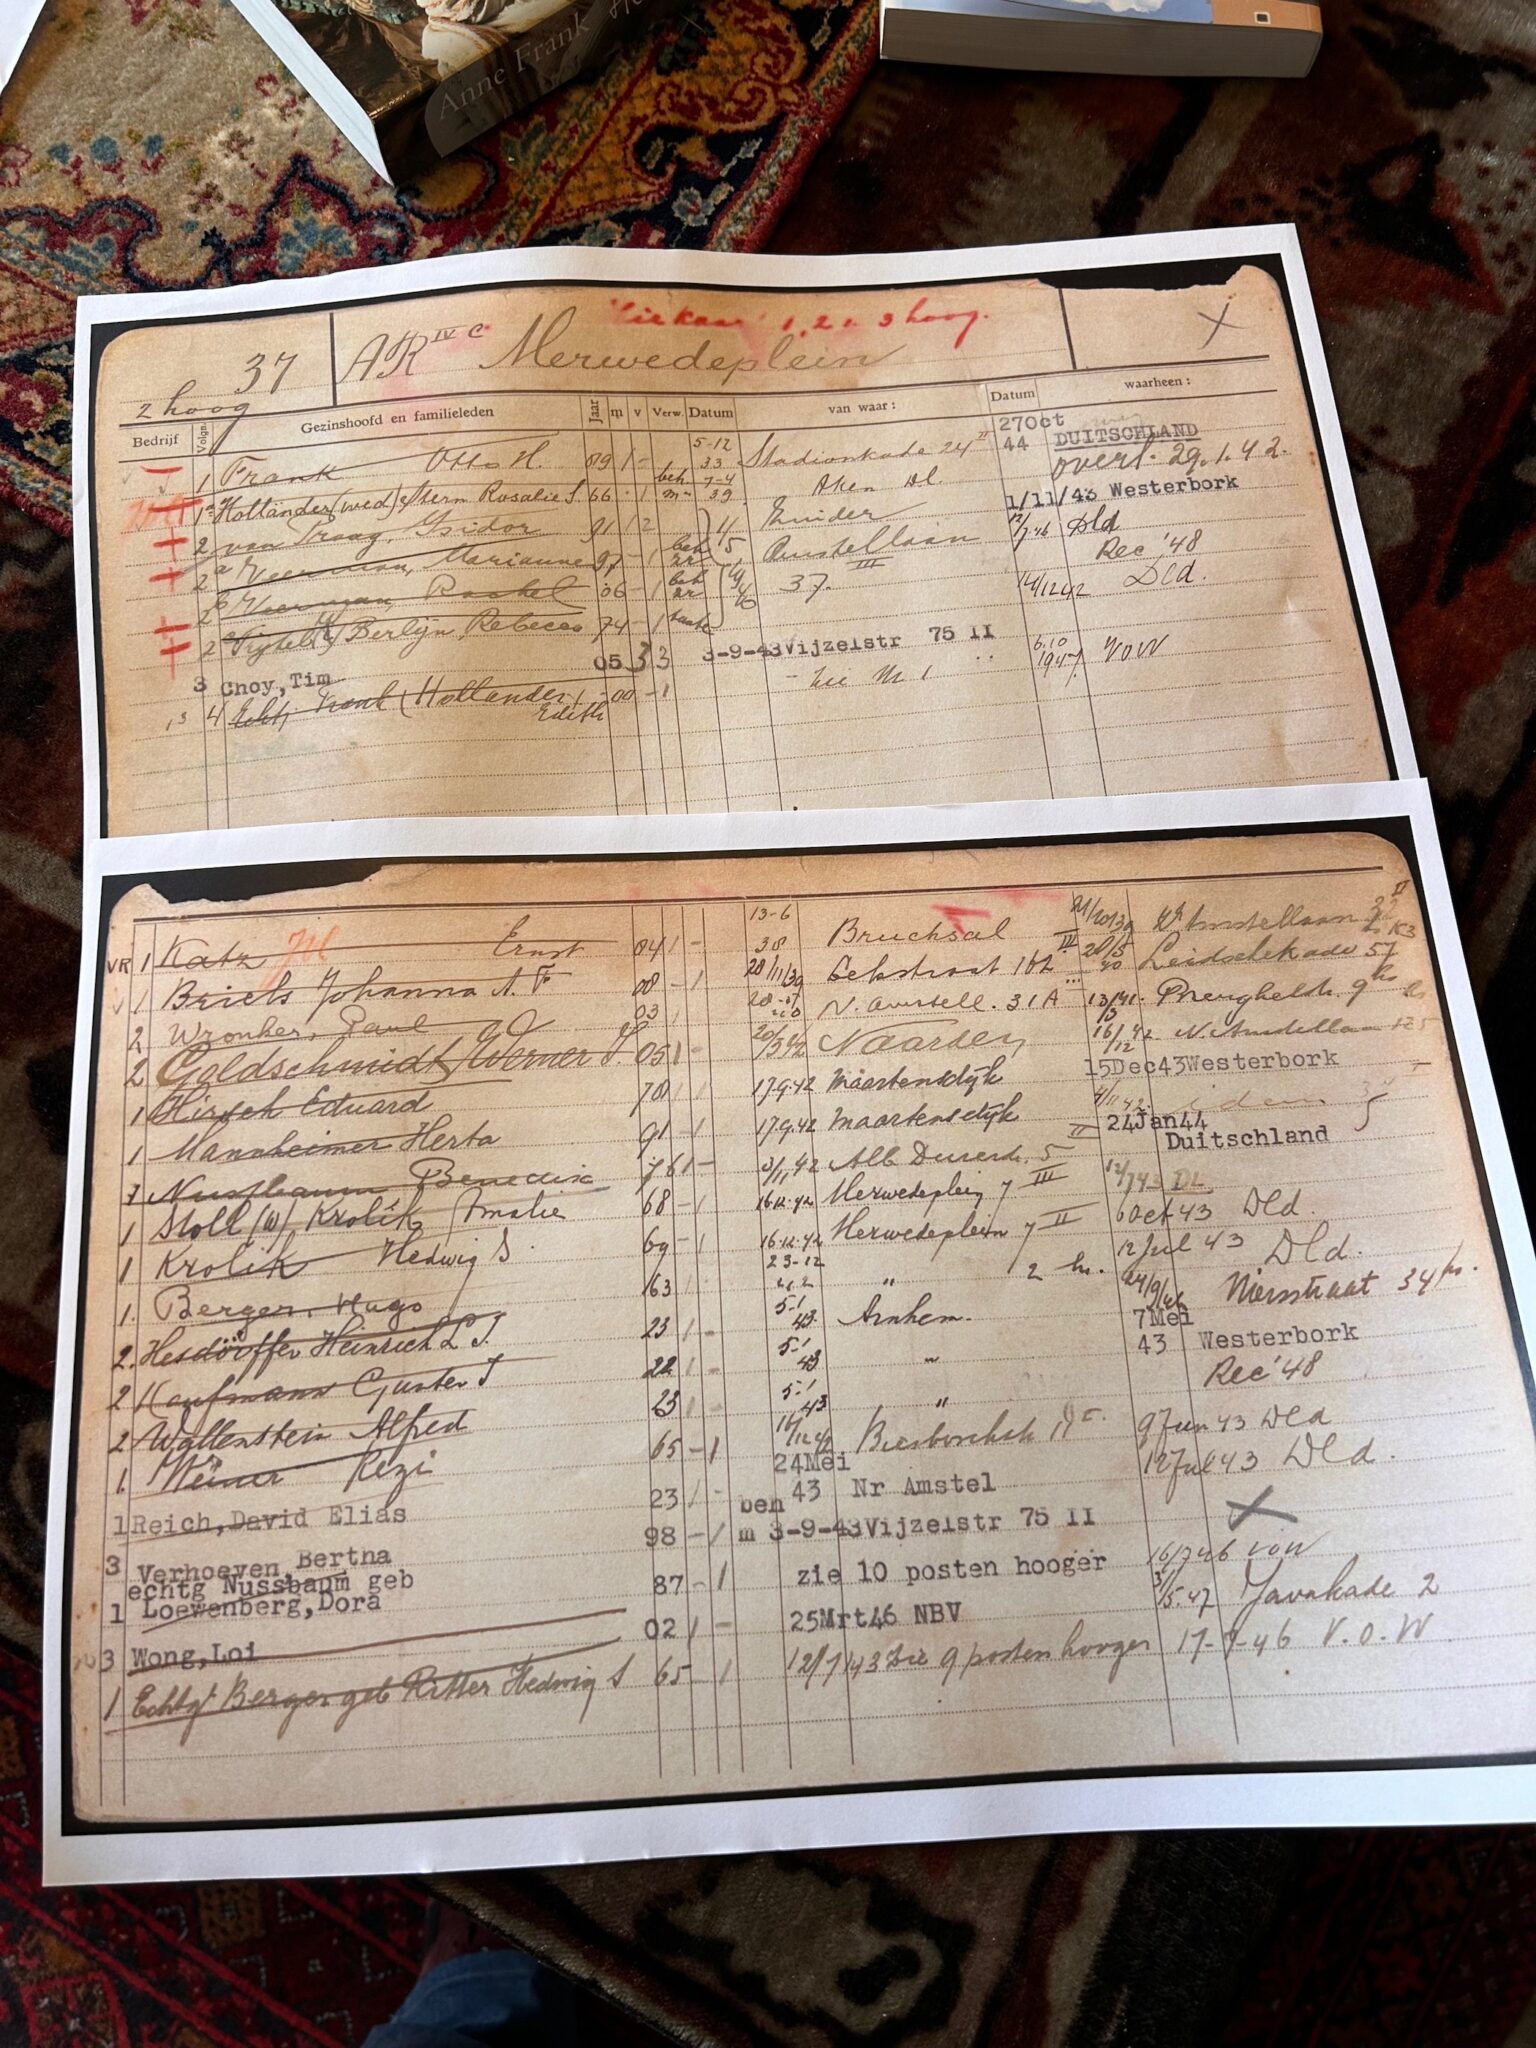 Anne Frank
kaart 1, 2 e. 3 hoog.
37 AR IV C Merwedeplein X
2 hoog
Bedrijf Volgn. Gezinshoofd en familieleden Jaar m v Verw. Datum van waar: Datum waarheen:
1 Frank Otto H. 89 1 - 5-12 33 Stadionkade 24 II 27Oct 44 DUITSCHLAND
1a Hollander (wed) Stern Rosalie S 66 - 1 beh m 7-4 39 Aken Dl. overl. 29.1.42.
2 van Praag, Isidor 91 1 2 11 Muider 1/11/43 Westerbork
2a Veerman, Marianne 97 - 1 beh zr 5 Amstellaan 12/7 46 Dld
2b Veerman, Rachel 06 - 1 beh zr 37. III Rec '48
2c Berlijn Rebecca 74 - 1 tante 14/12 42 Dld.
3 Choy, Tim 05 3 3 3-9-43 Vijzelstr 75 II 6.10 1947. VOW
4 Echtg Frank (Hollander) Edith - 00 - 1 - zie N 1
VR 1 Katz Ernst 04 1 - 13-6 38 Bruchsal 21/10/39 Amstellaan
1 Briels Johanna A. F 08 - 1 28/11/39 III 28/5 40 Leidschekade 57
2 Wronker, Paul 03 1 N. Amstell. 31 A
2 Goldschmidt, Werner J. 05 1 - 20/3 42 Naarden 16/12 42 N. Amstellaan
1 Hirsch Eduard 70 1 17.9.42 Maartensdijk 15Dec43 Westerbork
1 Mannheimer Herta 91 - 1 17.9.42 Maartensdijk 4/11 42. idem
1 Nussbaum Benedix 76 1 - 3/11 42 Alb Durerstr. 5 II 24Jan44 Duitschland
1 Stoll (w) Krolik Amalie 68 - 1 16.12.42 Merwedeplein 7 III 12/7 43 DL
1 Krolik Hedwig S. 69 - 1 16.12.42 Merwedeplein 7 II 6 Oct 43 Dld.
1. Berger, Hugo 63 1 23-12 42 " 2 h. 12 Jul 43 Dld.
2. Hesdörffer Heinrich L J. 23 1 - 5-1 43. Arnhem. 24/9/46 Nierstraat 34 hs.
2 Kaufmann Gunter J 22 1 - 5-1 43 " 7Mei 43 Westerbork
2 Wallenstein Alfred 23 1 - 5-1 43 " Rec '48
1. Weiner Rezi 65 - 1 16/12 42 Biesboschstr 9 Jun 43 Dld
1 Reich, David Elias 23 1 - 24Mei 43 Nr Amstel 12 Jul 43 Dld.
3 Verhoeven, Bertha 98 - 1 ben m 3-9-43 Vijzelstr 75 II X
echtg Nussbaum geb
1 Loewenberg, Dora 87 - 1 zie 10 posten hooger 16/7 46 VOW
3 Wong, Loi 02 1 - 25Mrt46 NBV 3/5-47 Javakade 2
1 Echtgt Berger geb Ritter Hedwig S 65 - 1 12/7 43 zie 9 posten hooger 17-9-46 V.O.W